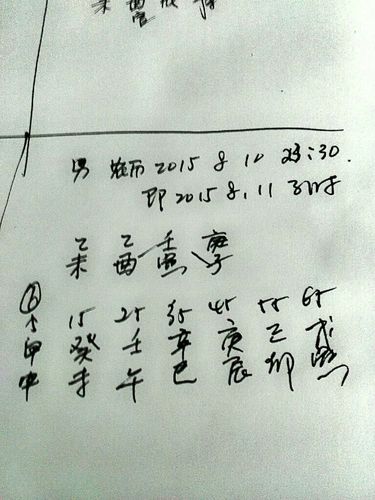 男 农历 2015 8 10 23:30.
即 2015 8.11 子时
乙 乙 壬 庚
未 酉 寅 子
15 25 35 45 55 65
甲 癸 壬 辛 庚 己 戊
申 未 午 巳 辰 卯 寅